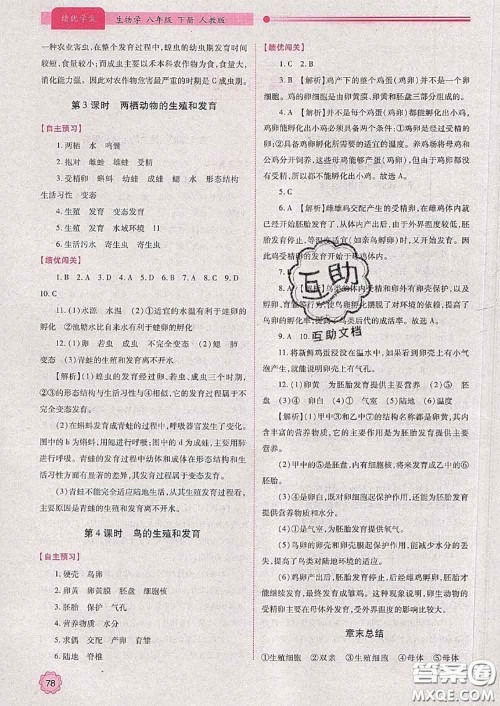 绩优学案 生物学 八年级 下册 人教版
一种农业害虫,在整个发育过程中,蝗虫的幼虫期发育时间
较短,食量较小;而成虫主要以禾本科农作物为食,且食量大,
消化能力强。因此对农作物危害最严重的时期是C成虫期。
第3课时 两栖动物的生殖和发育
【自主预习】
1.两栖 水 鸣囊
2.抱对 雌蛙 雄蛙 受精
3.受精卵 蝌蚪 幼蛙 成蛙 水 形态结构
生活习性 变态
4.生殖 发育 变态发育
5.生殖 发育 水域环境 11
6.生活污水 寄生虫 寄生虫
【绩优闯关】
1.B 2.A 3.B 4.D 5.B 6.A 7.C 8.D 9.D
10.C
11.(1)水源 水温 (2)适宜的水温有利于蛙卵的
孵化 (3)池塘水和自来水都有利于蛙卵的孵化
12.(1)蝗虫的发育不完全变态 (2)鳃 肺
(3)青蛙的生殖和发育离不开水
【解析】(1)蝗虫的发育经过卵、若虫、成虫三个时期,
图②③是若虫,形态结构差别不大,它的发育过程属于不完
全变态发育。
(2)在蝌蚪发育成青蛙时,呼吸器官发生了变化。
图中的b为蝌蚪,用鳃呼吸,图中的d为成蛙,用肺呼吸。
青蛙的发育过程中幼体和成体在形态结构和生
活习性方面有显著的差异,其发育过程属于变态发育。
(3)青蛙不能完全适应陆地生活,从其发育过程可以
看出,青蛙的生殖和发育离不开水。
第4课时 鸟的生殖和发育
【自主预习】
1.硬壳 鸟卵
2.卵黄 卵黄膜 胚盘 细胞核
3.胚胎 保护 气孔
4.营养物质 水分
5.求偶 交配 产卵 育雏
6.陆地 脊椎
【绩优闯关】
1.C 2.B 3.B 【解析】鸡产下的整个鸡蛋(鸡卵)并不是一个卵
细胞,鸡的卵细胞是由卵黄膜、卵黄、胚盘三部分组成的。
4.A 【解析】并不是所有的鸡蛋都能孵化出小鸡,鸡
卵能孵化出小鸡必须具备两个条件:(1)鸡卵是受精的;
(2)具备鸡卵孵化所需要的适宜的温度。养鸡场将母鸡和
公鸡分开饲养,这些母鸡能够产蛋(鸡卵),但没有受精,不
能够孵化出小鸡。故选A
5.C
6.A 【解析】雌雄鸡交配产生的受精卵,在雌鸡体内就
已经开始胚胎发育了,从体内产出后,由于外界温度较低,
胚胎发育停止,等温度适宜(如亲鸟孵卵)时又开始继续发
育,因此受精卵的发育开始于母鸡体内。
7.C
8.A 【解析】鸡的体内受精和受精卵外有卵壳保护,以及
孵卵、育雏等使鸟类的生殖摆脱了对环境的依赖,提高了
鸟卵的孵化率和鸟类产下后代的成活率。故选A
9.A 10.
11.将新鲜鸡蛋浸没在温水中,如果看到卵壳上有小气
泡产生,就能证明鸡卵卵壳上有气孔。
12.(1)卵黄 为胚胎提供主要营养 (2)胚盘 细胞核
(3)水分 (4)气室 (5)卵壳 (6)陆地 (7)温度
【解析】(1)甲中③和乙中⑦的结构名称都是卵黄,其
内含丰富的营养物质,主要作用是为胚胎发育提供主要营养。
(2)甲中的⑤是胚盘,内有细胞核,将来发育成乙中的
⑥胚胎。
(3)②是卵白,除了对卵细胞有保护作用外,还能为胚胎
发育提供营养物质和水分。
(4)①是气室,为胚胎发育提供氧气。
(5)鸟卵的卵壳和卵壳膜起保护作用,能减少水分的丢
失,与两栖动物相比,提高了对陆地环境的适应能力。
(6)鸡卵从母体中产出后,还需要经过母鸡孵卵,胚胎
才能继续发育,最终发育成雏鸡。这种现象说明,卵生动物的
受精卵主要在母体外发育,受外界温度的影响较大。
章末总结
①生殖细胞 ②双亲 ③生殖细胞 ④母体 ⑤母体
78
互助
互助文档
答案圈
MXQE.COM